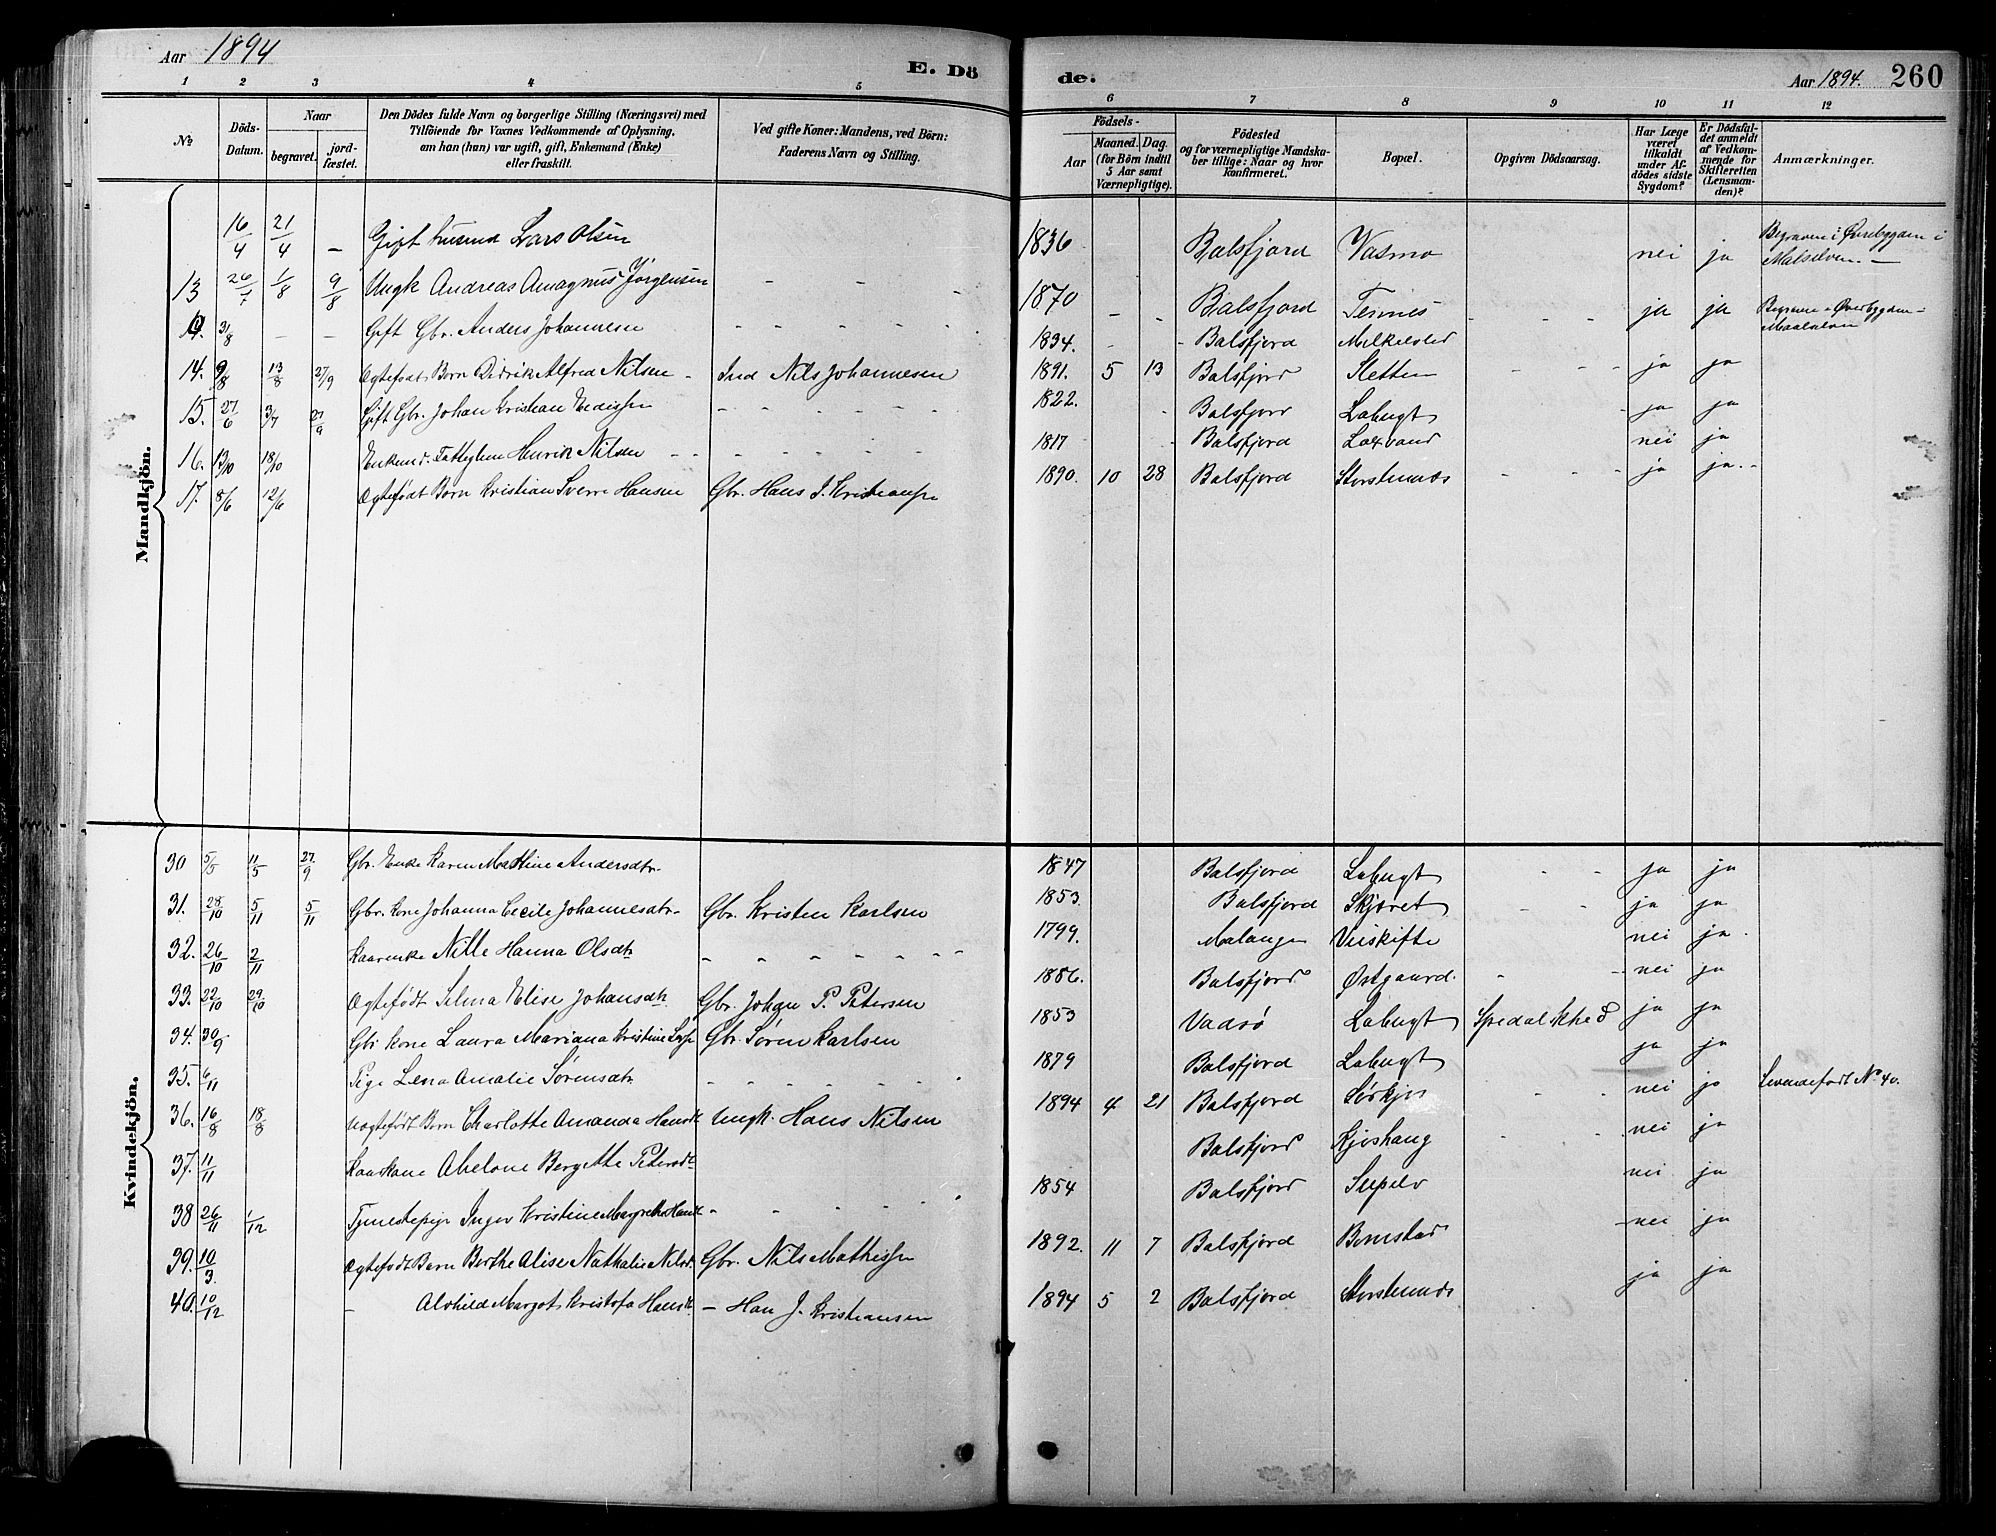 Aar 1894
E. Dö
de.
Aar 1894.
260
1 2 3 4 5
6 7 8 9 10 11 12
No
Döds-
Datum.
Naar
begravet.
jord-
fæstet.
Den Dödes fulde Navn og borgerlige Stilling (Næringsvei) med
Tilföiende for Voxnes Vedkommende af Oplysning,
om han (hun) var ugift, gift, Enkemand (Enke)
eller fraskilt.
Ved gifte Koner: Mandens, ved Börn:
Faderens Navn og Stilling.
Födsels-
Aar
Maaned. Dag.
(for Börn indtil
5 Aar samt
Værnepligtige).
Födested
og for værnepligtige Mandska-
ber tillige: Naar og hvor
konfirmeret.
Bopæl.
Opgiven Dödsaarsag.
Har Læge
været
tilkaldt
under Af-
dödes sidste
Sygdom?
Er Dödsfal-
det anmeldt
af Vedkom-
mende for
Skifteretten
(Lensman-
den)?
Anmærkninger.
Mandkjön.
16/4 21/4 - Gift Lars Olsen 1836 Balsfjord Vasmo nei ja Begraven i Øvrebygden i
Malselven. -
13 26/7 1/8 9/8 Ungk Andreas Amagnus Jørgensen - - - 1870 - - Balsfjord - - - ja ja
31/8 - - Gift Gbr. Anders Johannesen - - - - - 1834. - - Balsfjord
14. 9/8 13/8 27/9 Ægtefødt Barn Didrik Alfred Nilsen - Ind Nils Johannesen 1891. 5 13 Balsfjord Sletten - - - ja ja
15. 27/6 3/7 27/9 Gift Gbr. Johan Kristian - - - - - - 1822. - Balsfjord Labugt - ja ja
16. 13/10 18/10 Enkemd. Henrik Nilsen - - - - - - 1817 - Balsfjord nei ja
17. 8/6 12/6 Ægtefødt Barn Kristian Sverre Hansen Gbr. Hans J. Kristiansen 1890. 10 28 Balsfjord Storstennes - - - ja ja. -
Kvindekjön.
30 5/5 11/5 27/9 Gbr. Enke Karen Mathine Andersdtr. 1847 Balsfjord Labugt - - ja ja
31. 28/10 5/11 5/11 Gbr. Kone Johanna Cecile Johannesdtr. Gbr. Kristen Karlsen 1853. Balsfjord Skjæret - - ja ja
32. 26/10 2/11 Kaarenke Nille Hanna Olsdtr. - - - - - - - 1799. Malangen nei ja.
33. 22/10 29/10 Ægtefødt Selma Elise Johansdtr. Gbr. Johan P. Petersen 1886. Balsfjord Østgaard. - - nei ja
34. 30/9 Gbr Kone Laura Mariana Kristine Gbr. Søren Karlsen 1853 Vadsø Labugt Spedalskhed ja ja
35. 6/11 Pige Lena Amalie Sørensdtr. - - - - - - - 1879 Balsfjord Labugt ja ja
36. 16/8 18/8 Uægtefødt Barn Charlotte Amanda Hansdtr. Ungk. Hans Nilsen 1894 4 21 Balsfjord Sørkjos - - nei ja Levendefødt No 40.
37. 11/11 Kaarkone Abelone Bergitte Petersdtr. Balsfjord Kjoshaug - - nei ja
38 26/11 1/12 Tjenestepige Inger Kristine Margrethe Hansdtr. - - - - - 1854 Balsfjord nei ja
39. 10/3. Ægtefødt Barn Berthe Alise Nathalie Nilsd. Gbr. Nils Mathissen 1892. 11 7 Balsfjord Bomstad - nei ja
40. 10/12 - Alvhilde Margot Kristofa Hansdtr. - Han J. Kristiansen 1894 5 2 Balsfjord Storstennes ja ja